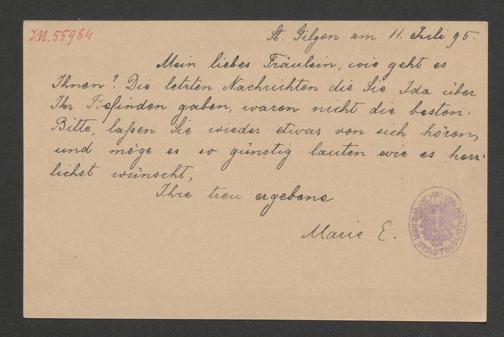 I.N. 55964
St. Gilgen am 11. Juli 95.
Mein liebes Fräulein, wie geht es
Ihnen? Die letzten Nachrichten die Sie Ida über
Ihr Befinden gaben, waren nicht die besten.
Bitte, laßen Sie wieder etwas von sich hören,
und möge es so günstig lauten wie es herz-
lichst wünscht,
Ihre treu ergebene
Marie E.
WIENER STADTBIBLIOTHEK